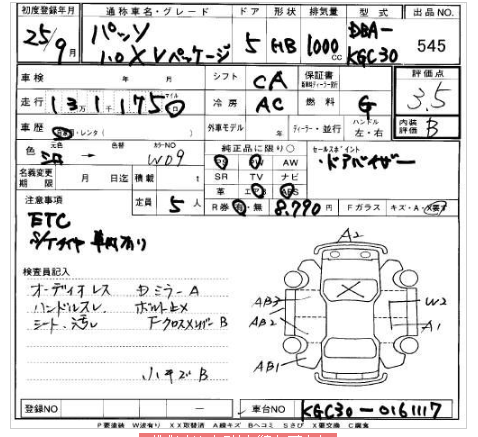 初度登録年月 通称車名・グレード ドア 形状 排気量 型式 出品NO.
25/9月 パッソ 1.0 X Vパッケージ 5 HB 1000cc DBA-KGC30 545
車検 年 月 シフト CA 保証書 評価点 3.5
走行 131,175 冷房 AC 燃料 G 内装評価 B
車歴 レンタ 外車モデル 年 ディーラー・並行 ハンドル 左・右
色 元色 → 色替 カラーNO W09 純正品に限り〇 セールスポイント
PS PW AW ・ドアバイザー
名義変更期限 月 日迄 積載 t SR TV ナビ
革 エアB ABS
注意事項 定員 5人 R券 有・無 8,790円 Fガラス キズ・A・X要交
ETC
検査員記入
オーディオレス 力ミラーA
ハンドルスレ ボルト止メ
シート汚レ FクロスメンバーB
小キズB
A2
AB2
AB1
W2
A1
登録NO 車台NO KGC30-0161117
P要塗装 W波有り XX取替済 A線キズ Bヘコミ Sさび X要交換 C腐食